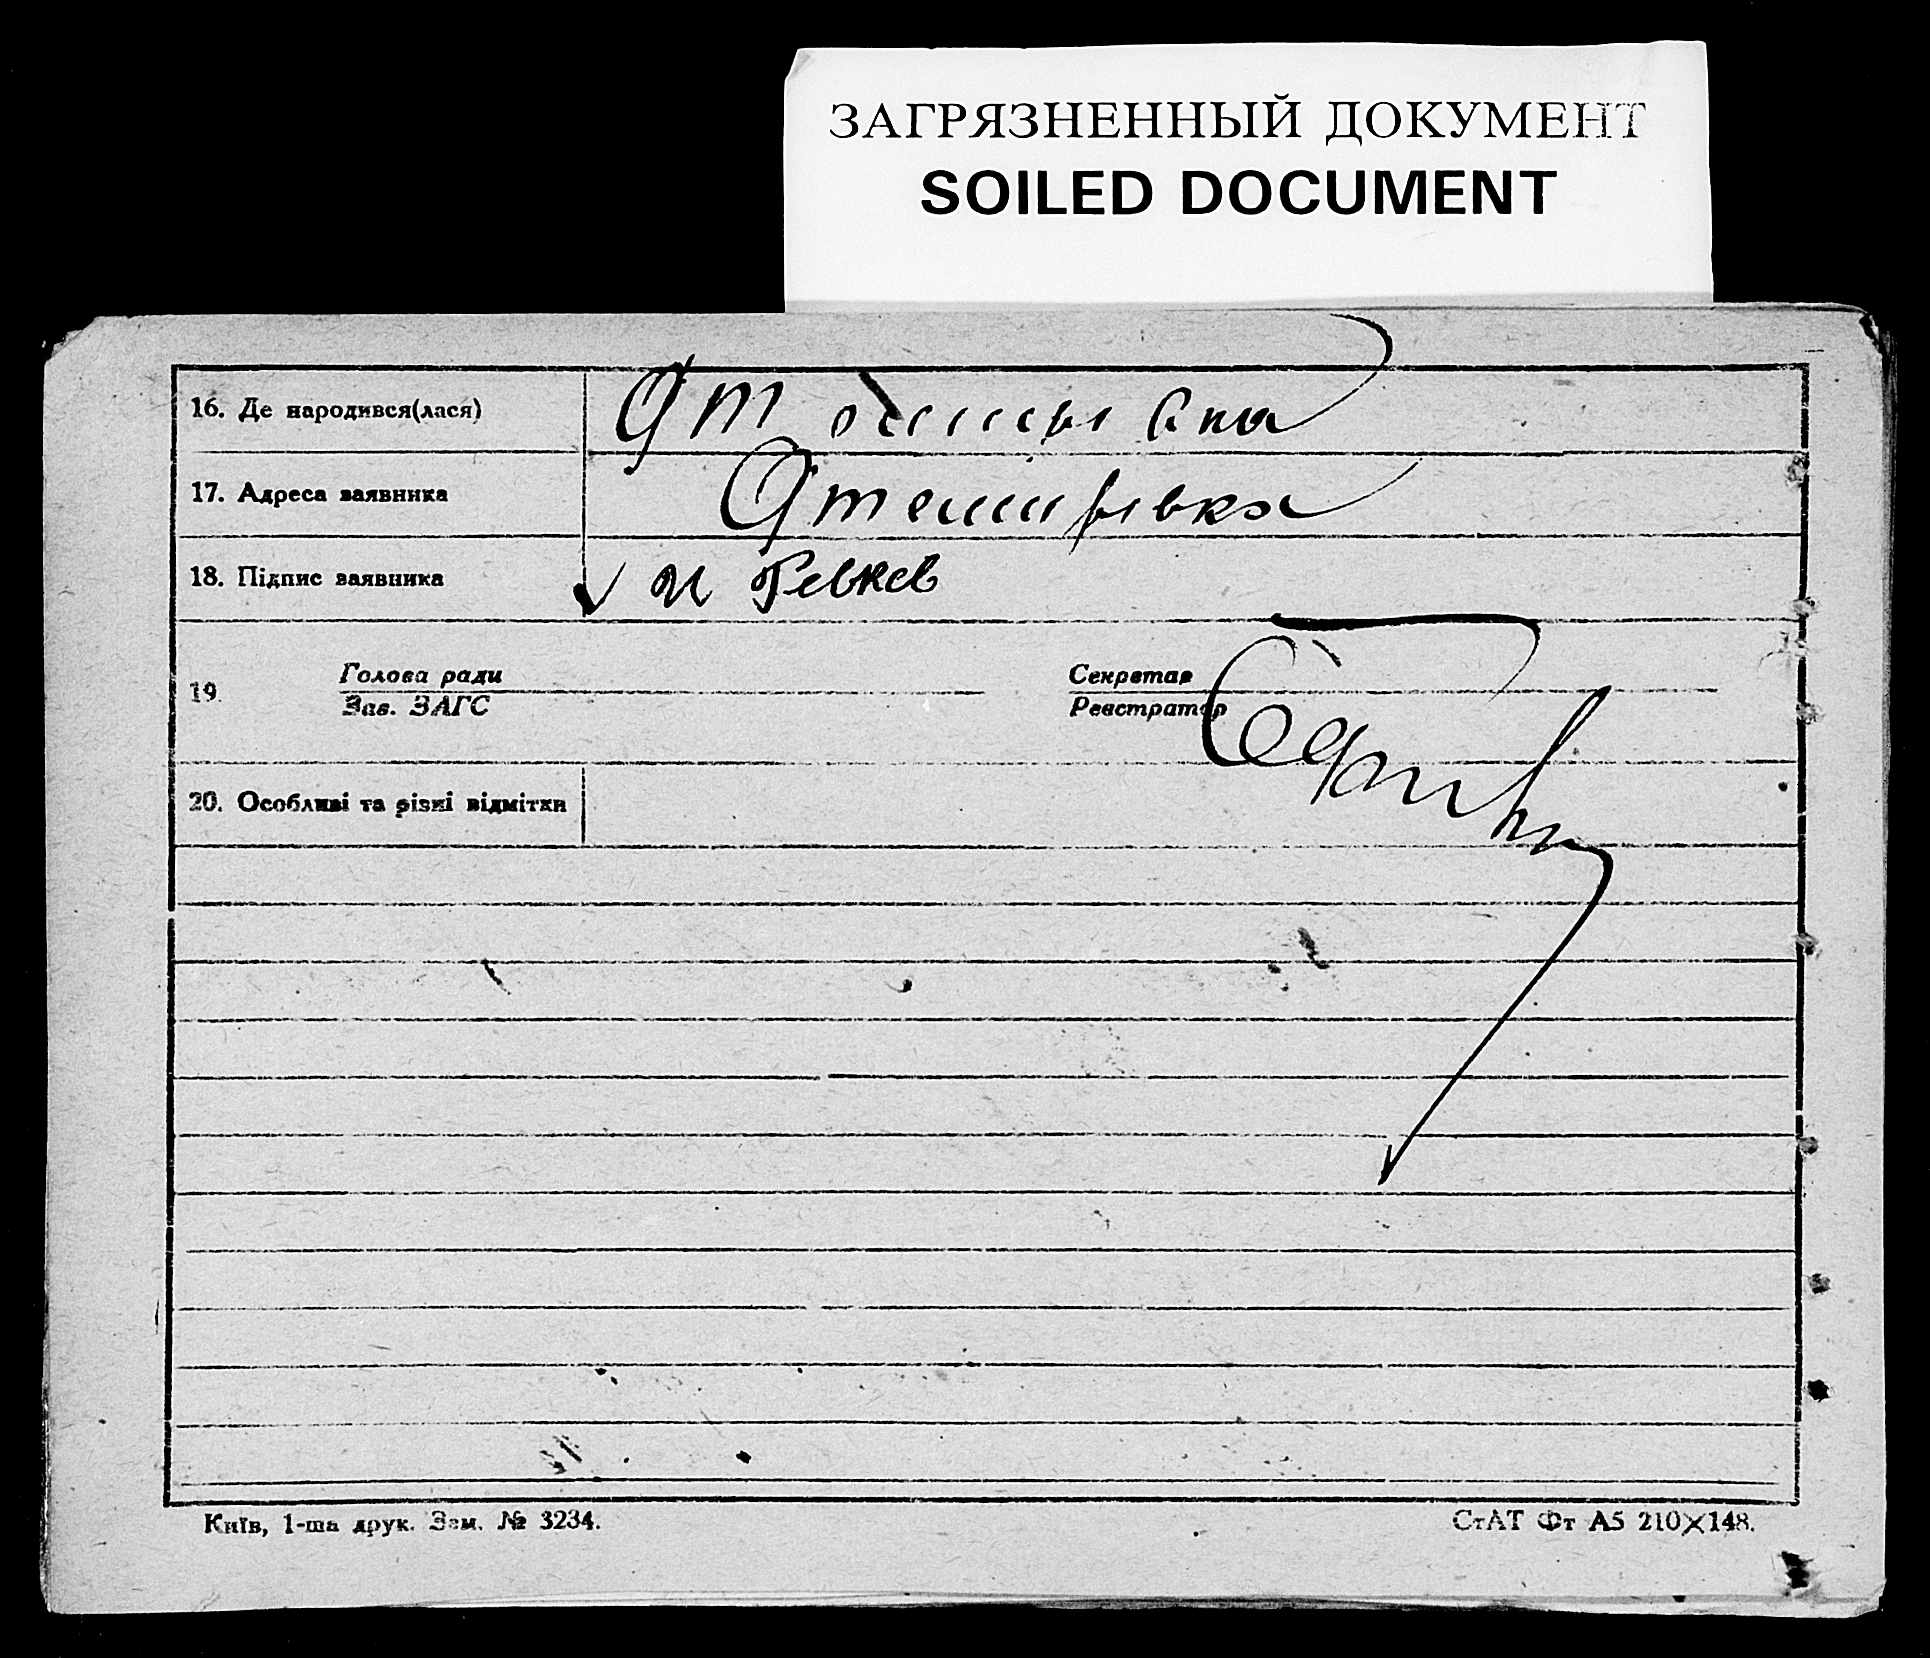 ЗАГРЯЗНЕННЫЙ ДОКУМЕНТ
SOILED DOCUMENT
16. Де народився(лася)
17. Адреса заявника
18. Підпис заявника
19. Голова ради Секретар
Зав. ЗАГС Реєстратор
20. Особливі та різні відмітки
Київ, 1-ша друк. Зам. № 3234. СтАТ Фт А5 210×148.